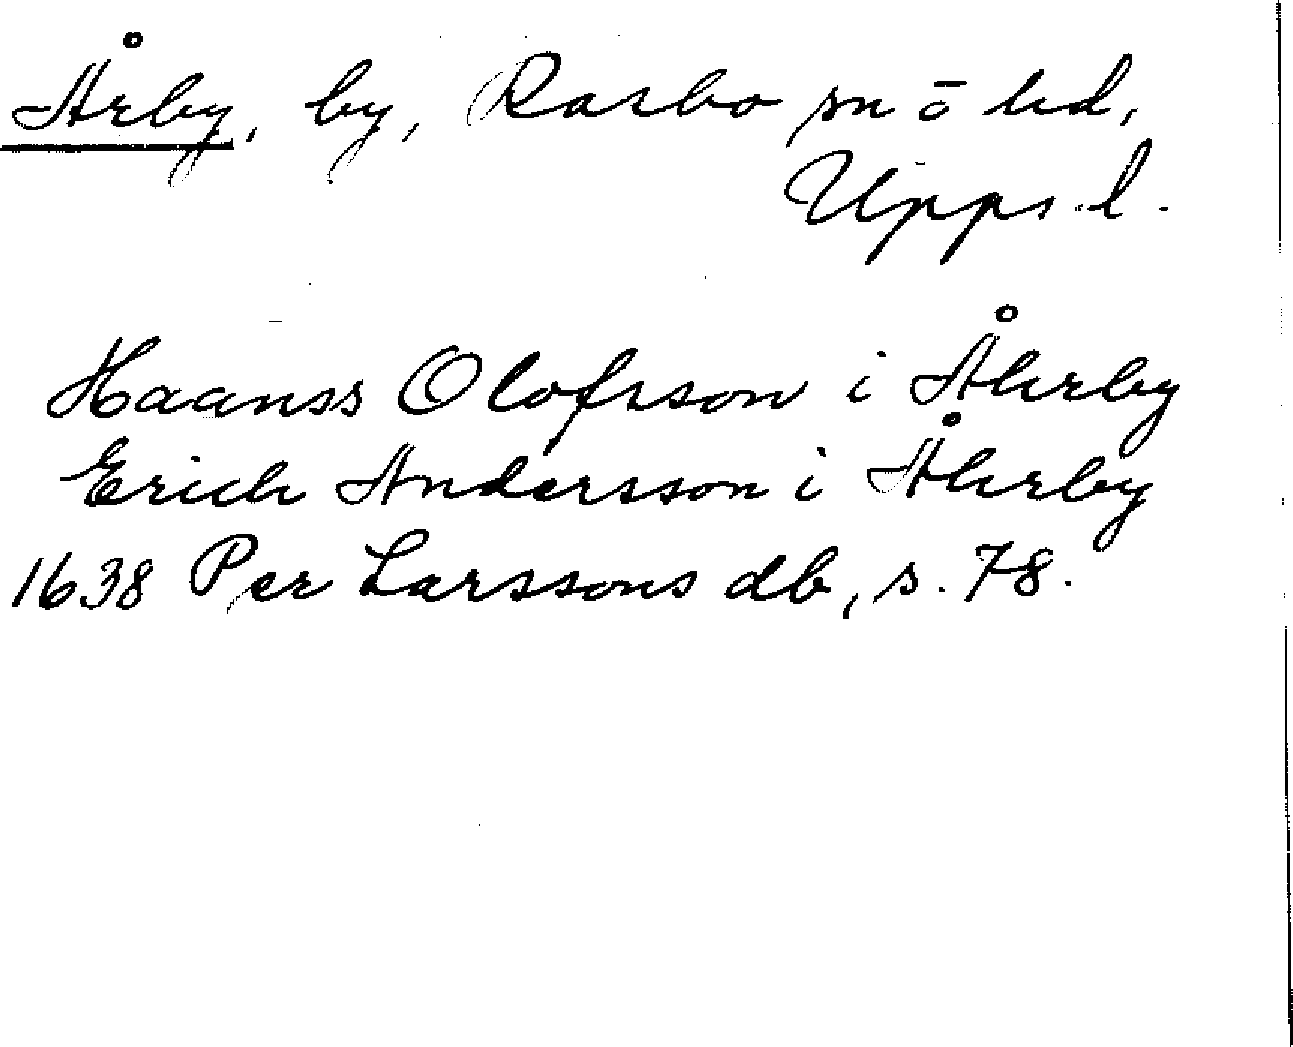 Årby, by, Rasbo sn ō hd,
Upps. l.
Haanss Olofsson i Åhrby
Erich Andersson i Åhrby
1638 Per Larssons db, s. 78.